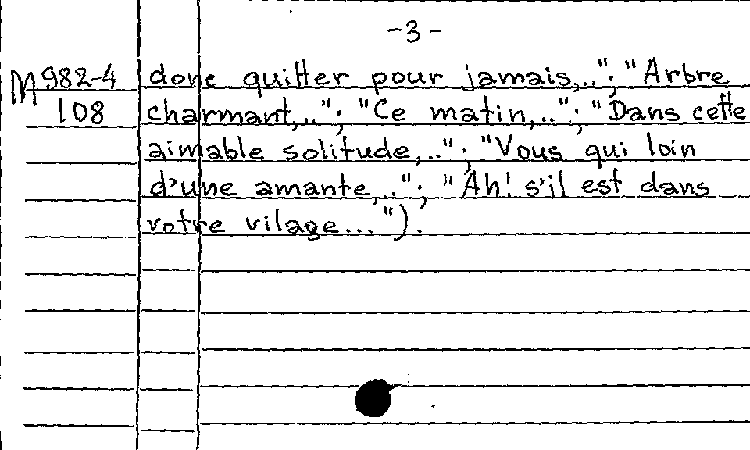 -3-
M 982-4 donc quitter pour jamais,.."; "Arbre
108 charmant,.."; "Ce matin,.."; "Dans cette
aimable solitude,.."; "Vous qui loin
d'une amante,.."; "Ah! s'il est dans
votre vilage...").